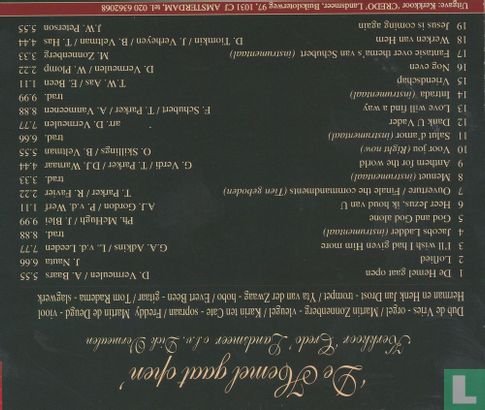 'De Hemel gaat open'
Kerkkoor 'Credo' Landsmeer o.l.v. Dick Vermeulen
Dub de Vries - orgel / Martin Zonnenberg - vleugel / Karin ten Cate - sopraan / Freddy Martin de Deugd - viool
Herman en Henk Jan Drost - trompet / Yta van der Zwaag - hobo / Evert Been - gitaar / Tom Radema - slagwerk
1 De Hemel gaat open D. Vermeulen / A. Baars 5.55
2 Loflied J. Nauta 6.66
3 I'll wish I had given Him more G.A. Adkins / L. v.d. Leeden 7.77
4 Jacobs Ladder (instrumentaal) trad. 8.88
5 God and God alone Ph. McHugh / J. Blei 9.99
6 Heer Jezus, ik houd van U A.J. Gordon / P. v.d. Werf 1.11
7 Ouverture / Finale the commandments (Tien geboden) T. Parker / R. Favier 2.22
8 Menuet (instrumentaal)
9 Anthem for the world G. Verdi / T. Parker / D.J. Warnaar 4.44
10 Voor jou (Right now) O. Skillings / B. Veltman 5.55
11 Salut d'amor (instrumentaal) trad. 6.66
12 Dank U Vader arr. D. Vermeulen 7.77
13 Love will find a way F. Schubert / T. Parker / A. Vanmeenen 8.88
14 Intrada (instrumentaal) trad. 9.99
15 Vriendschap T.W. Aas / E. Been 1.11
16 Nog even D. Vermeulen / W. Plomp 2.22
17 Fantasie over thema's van Schubert (instrumentaal) M. Zonnenberg 3.33
18 Werken van Hem D. Tiomkin / J. Verheyen / B. Veltman / T. Has 4.44
19 Jesus is coming again J.W. Peterson 5.55
Uitgave: Kerkkoor CREDO, Landsmeer, Buiksloterweg 97, 1031 CJ AMSTERDAM, tel. 020 6362068
catawiki